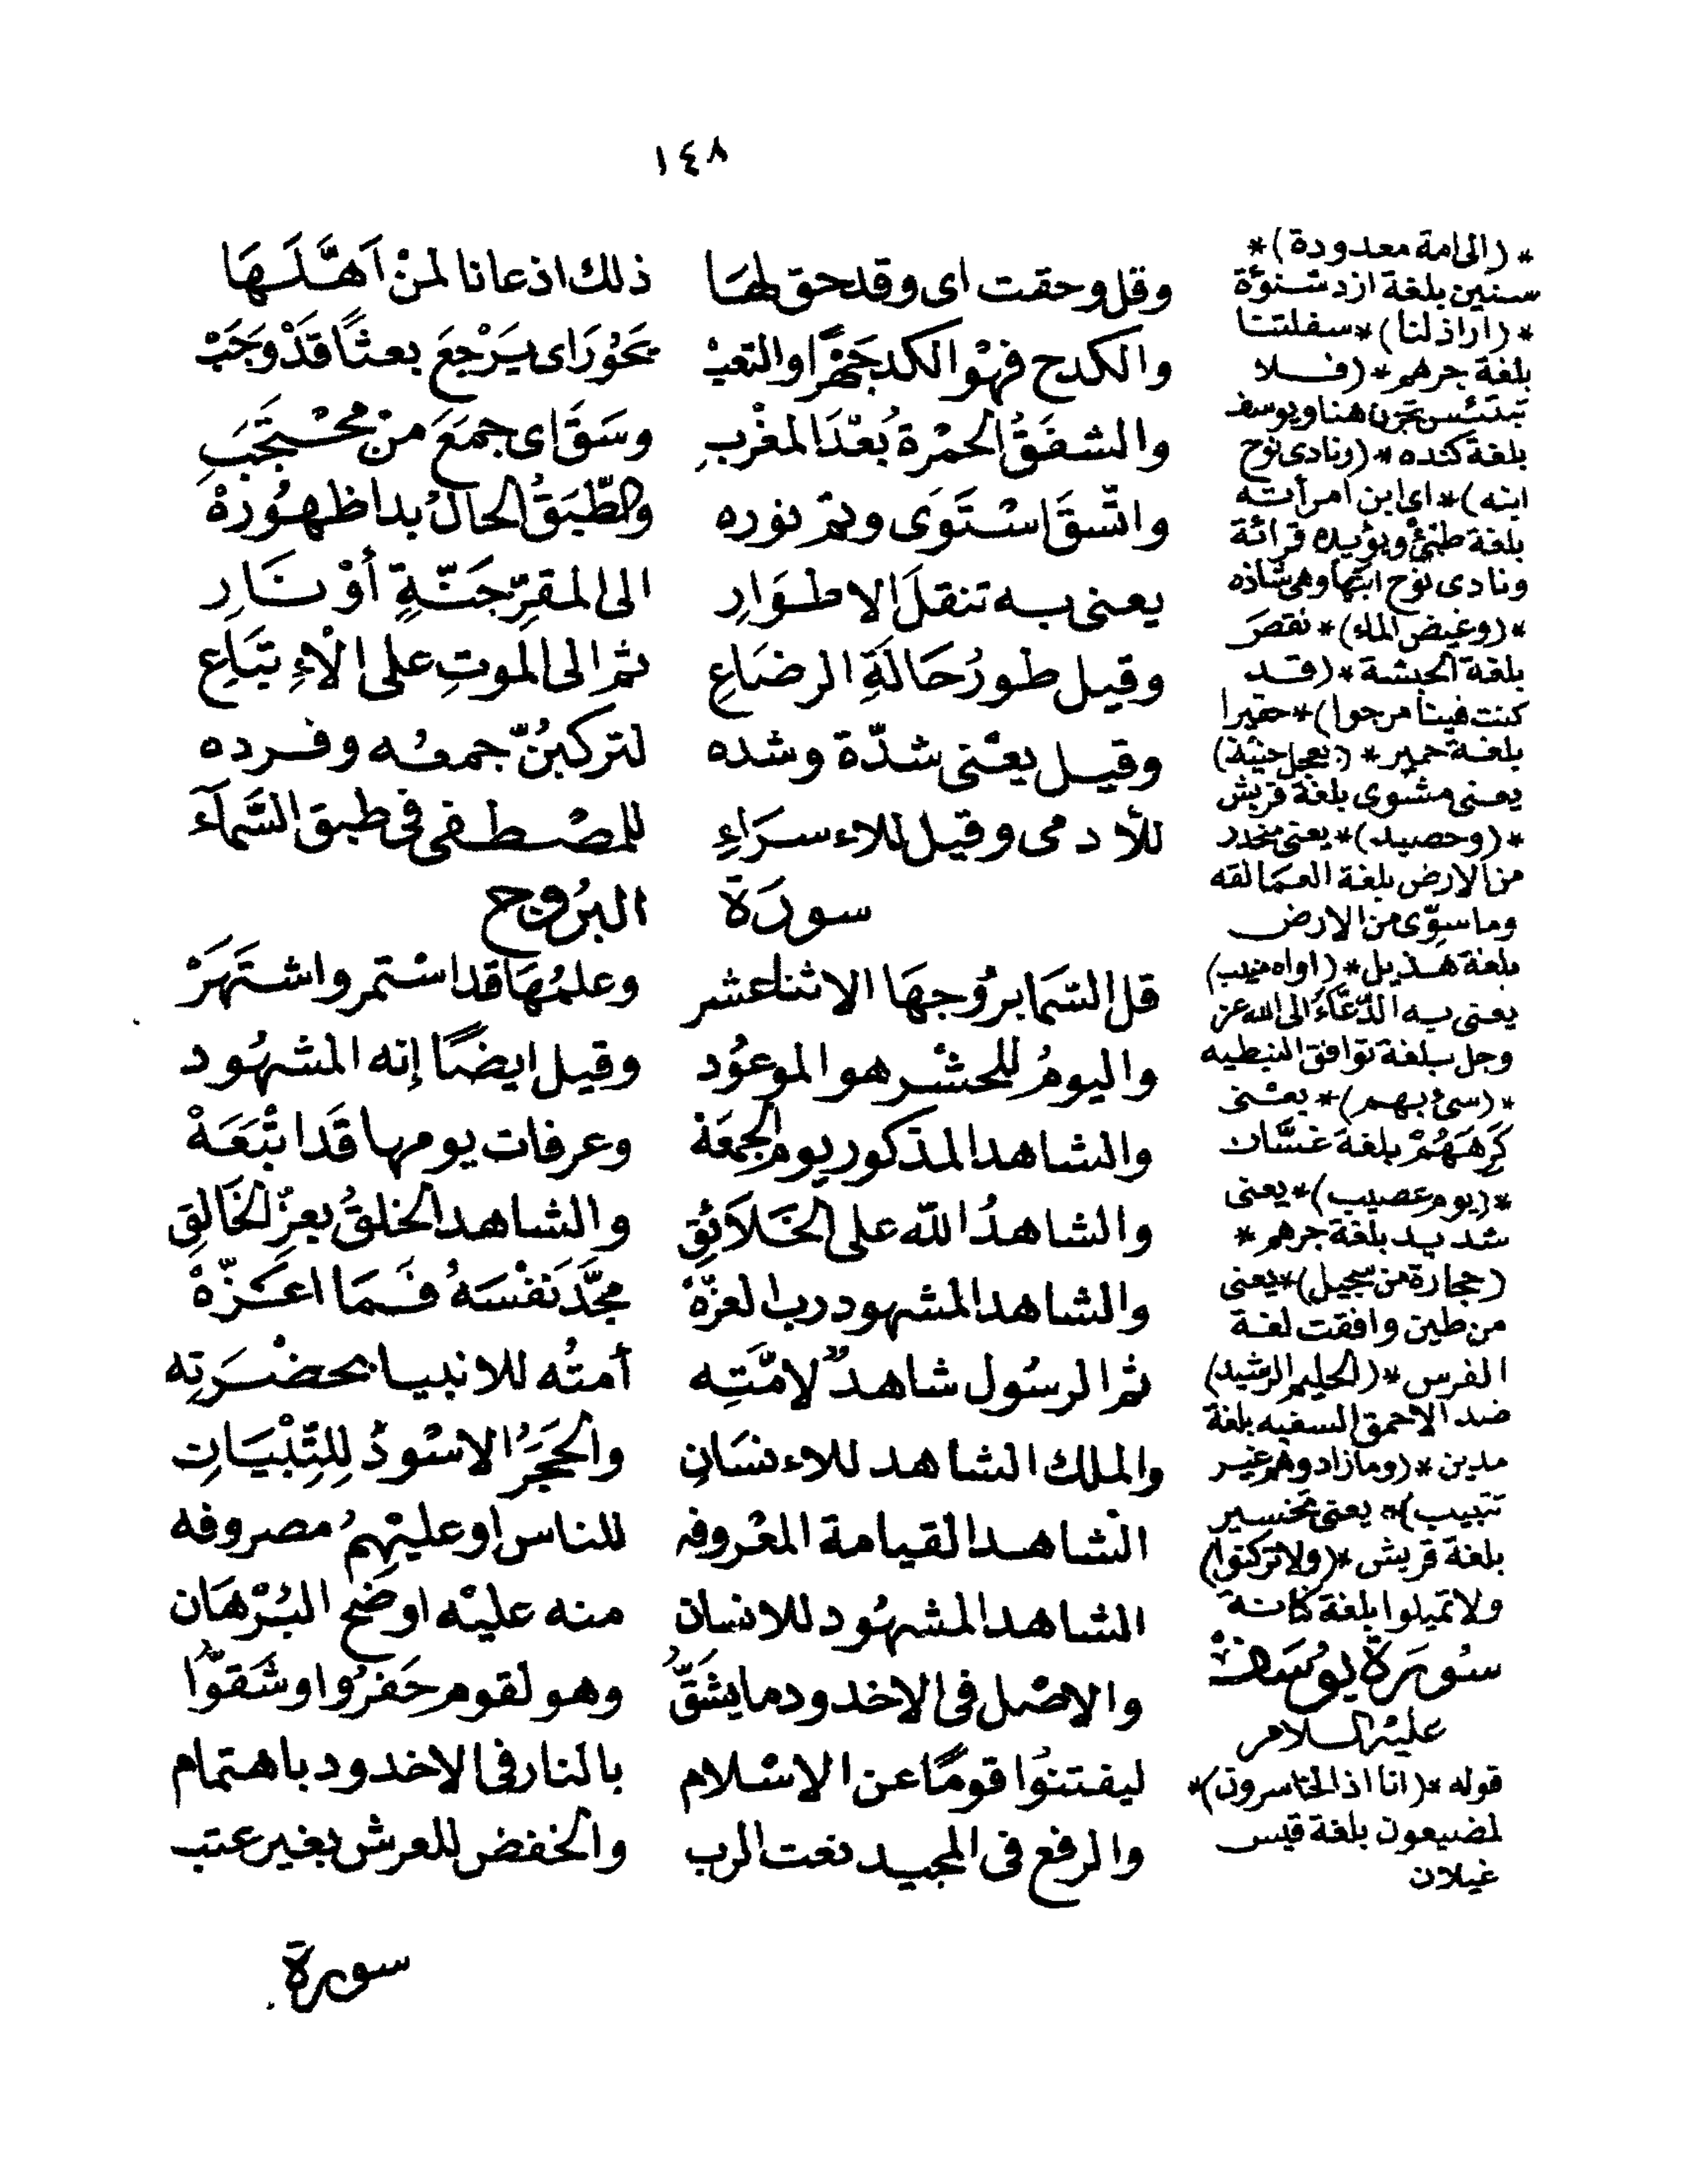 ١٤٨
وقل وحقت اى وقد حق لها ذلك اذعانا لمنْ اَهَّلَهَا
والكدح فهْو الكد جَهْرًا والتعبْ يَحُورَ اى يَرْجِعَ بعثًا قَدْ وَجَبْ
والشفَقُ الحمْرة بُعَدَ المغْربِ وسَقَ اى جمَعَ منْ محْتَجَبِ
واتّسقَ اسْتَوَى وتمّ نوره والطّبَقُ الحالُ بدا ظهُورُهْ
يعنى به تنقلَ الاطوَارِ الى المقرِّ جَنّةٍ أوْ نَارِ
وقيل طورُ حَالَةِ الرضَاعِ ثم الى الموتِ على الْاءِتبَاعِ
وقيل يعْنى شدّة وشده لتركبُنّ جمعُه وفرده
للآدمى وقيل للاءسرَاءِ للمصْطفى فى طبق السَّمآءَ
سورَة البرُوج
قل السّمَا برُوجهَا الاثنا عشر وعلمُهَا قد اسْتمر واشتَهَرْ
واليومُ للحشْر هو الموعُود وقيل ايضًا إنه المشهُود
والشاهد المذكور يوم الجمعَة وعرفات يومها قَد اتْبَعَهْ
والشاهدُ الله على الخَلَائِقِ والشاهد الخلقُ بعزّ الخَالِقِ
والشاهد المشهود رب العزّهْ مجَّدَ نَفْسَهُ فَمَا اعَزّهْ
ثم الرسُول شاهدٌ لامَّتِه أمتُه للانبيا بحضْرَتِه
والملك الشاهد للاءنسَانِ والحَجَرُ الاسْودُ لِلتِّبْيَاتِ
الشاهد القيامة المعْروفه للناس او عليْهمُ مصروفه
الشاهد المشهُود للانسان منه عليْه اوضح البُرْهَان
والاصْل فى الاخدود ما يشَقُّ وهو لقوم حَفرُوا وشَقوّا
ليفتنوُا قومًا عن الاسْلام بالنار فى الاخدود باهتمام
والرفع فى المجيد نعت الرب والخفض للعرش بغير عتب
سورة
*(الى امة معدودة)*
سنين بلغة ازد شنوُة
*(اراذلنا)* سفلتنا
بلغة جرهم *(فلا
تبتئس تحزن هنا ويوسف
بلغة كنده *(ونادى نوح
ابنه)* اى ابن امرأته
بلغة طيئ ويؤيده قرائة
ونادى نوح ابنها وهى شاذه
*(وغيض الماء)* نقصَ
بلغة الحبشة *(قد
كنت فينا مرجوا)* حقيرا
بلغة حمير *(بعجل حنيذ)
يعنى مشوى بلغة قريش
*(وحصيد)* يعنى منحدر
من الارض بلغة العمالقه
وما سوّى من الارض
بلغة هذيل *(اواه منيب)
يعنى به الدّعَّاءُ الى الله عز
وجل بلغة توافق النبطيه
*(سئ بهم)* يعْنى
كَرِهَهُمْ بلغة غسَّان
*(يوم عصيب)* يعنى
شديد بلغة جرهم *
(حجارة من سجيل)* يعنى
من طين وافقت لغة
الفرس *(الحليم الرشيد)
ضد الاحمق السفيه بلغة
مدين *(وما زادوهم غير
تتبيب)* يعنى تخسير
بلغة قريش *(ولا تركنوا)
ولا تميلوا بلغة كنانة
سُورَة يوُسَف
عليْه السلام
قوله *(انا اذا لخاسرون)*
لمضيعون بلغة قيس
غيلان